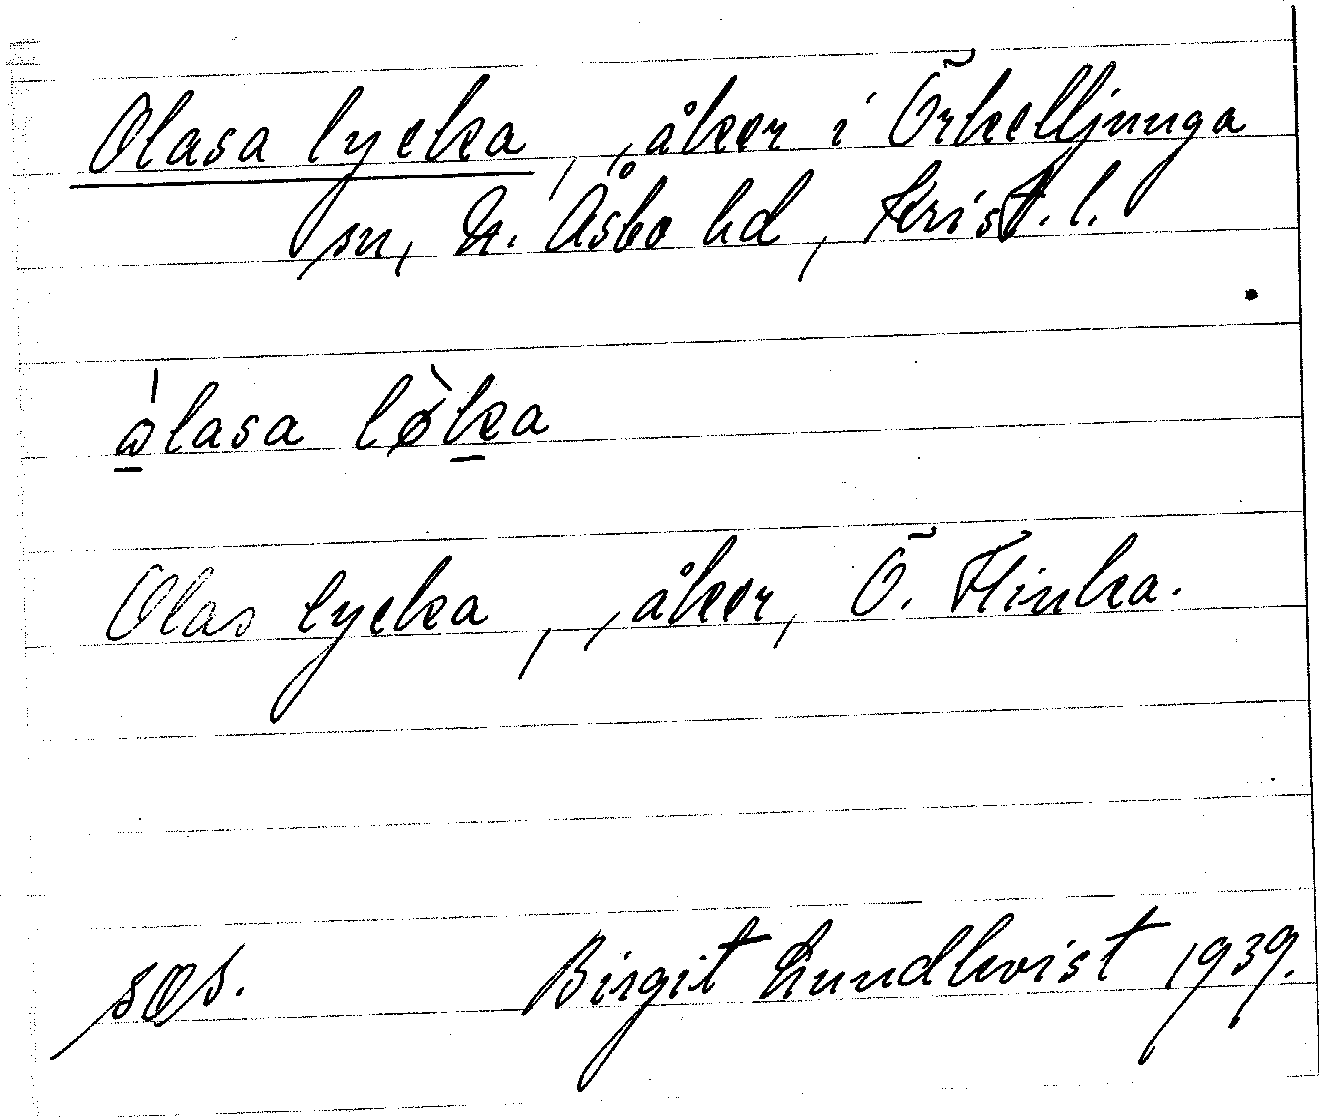 Olasa lycka, , åker i Örkelljunga
sn, N. Åsbo hd, Krist. l.
ólasa lø̀ka
Olas lycka, , åker, Ö. Flinka.
sæs. Birgit Lundkvist 1939.